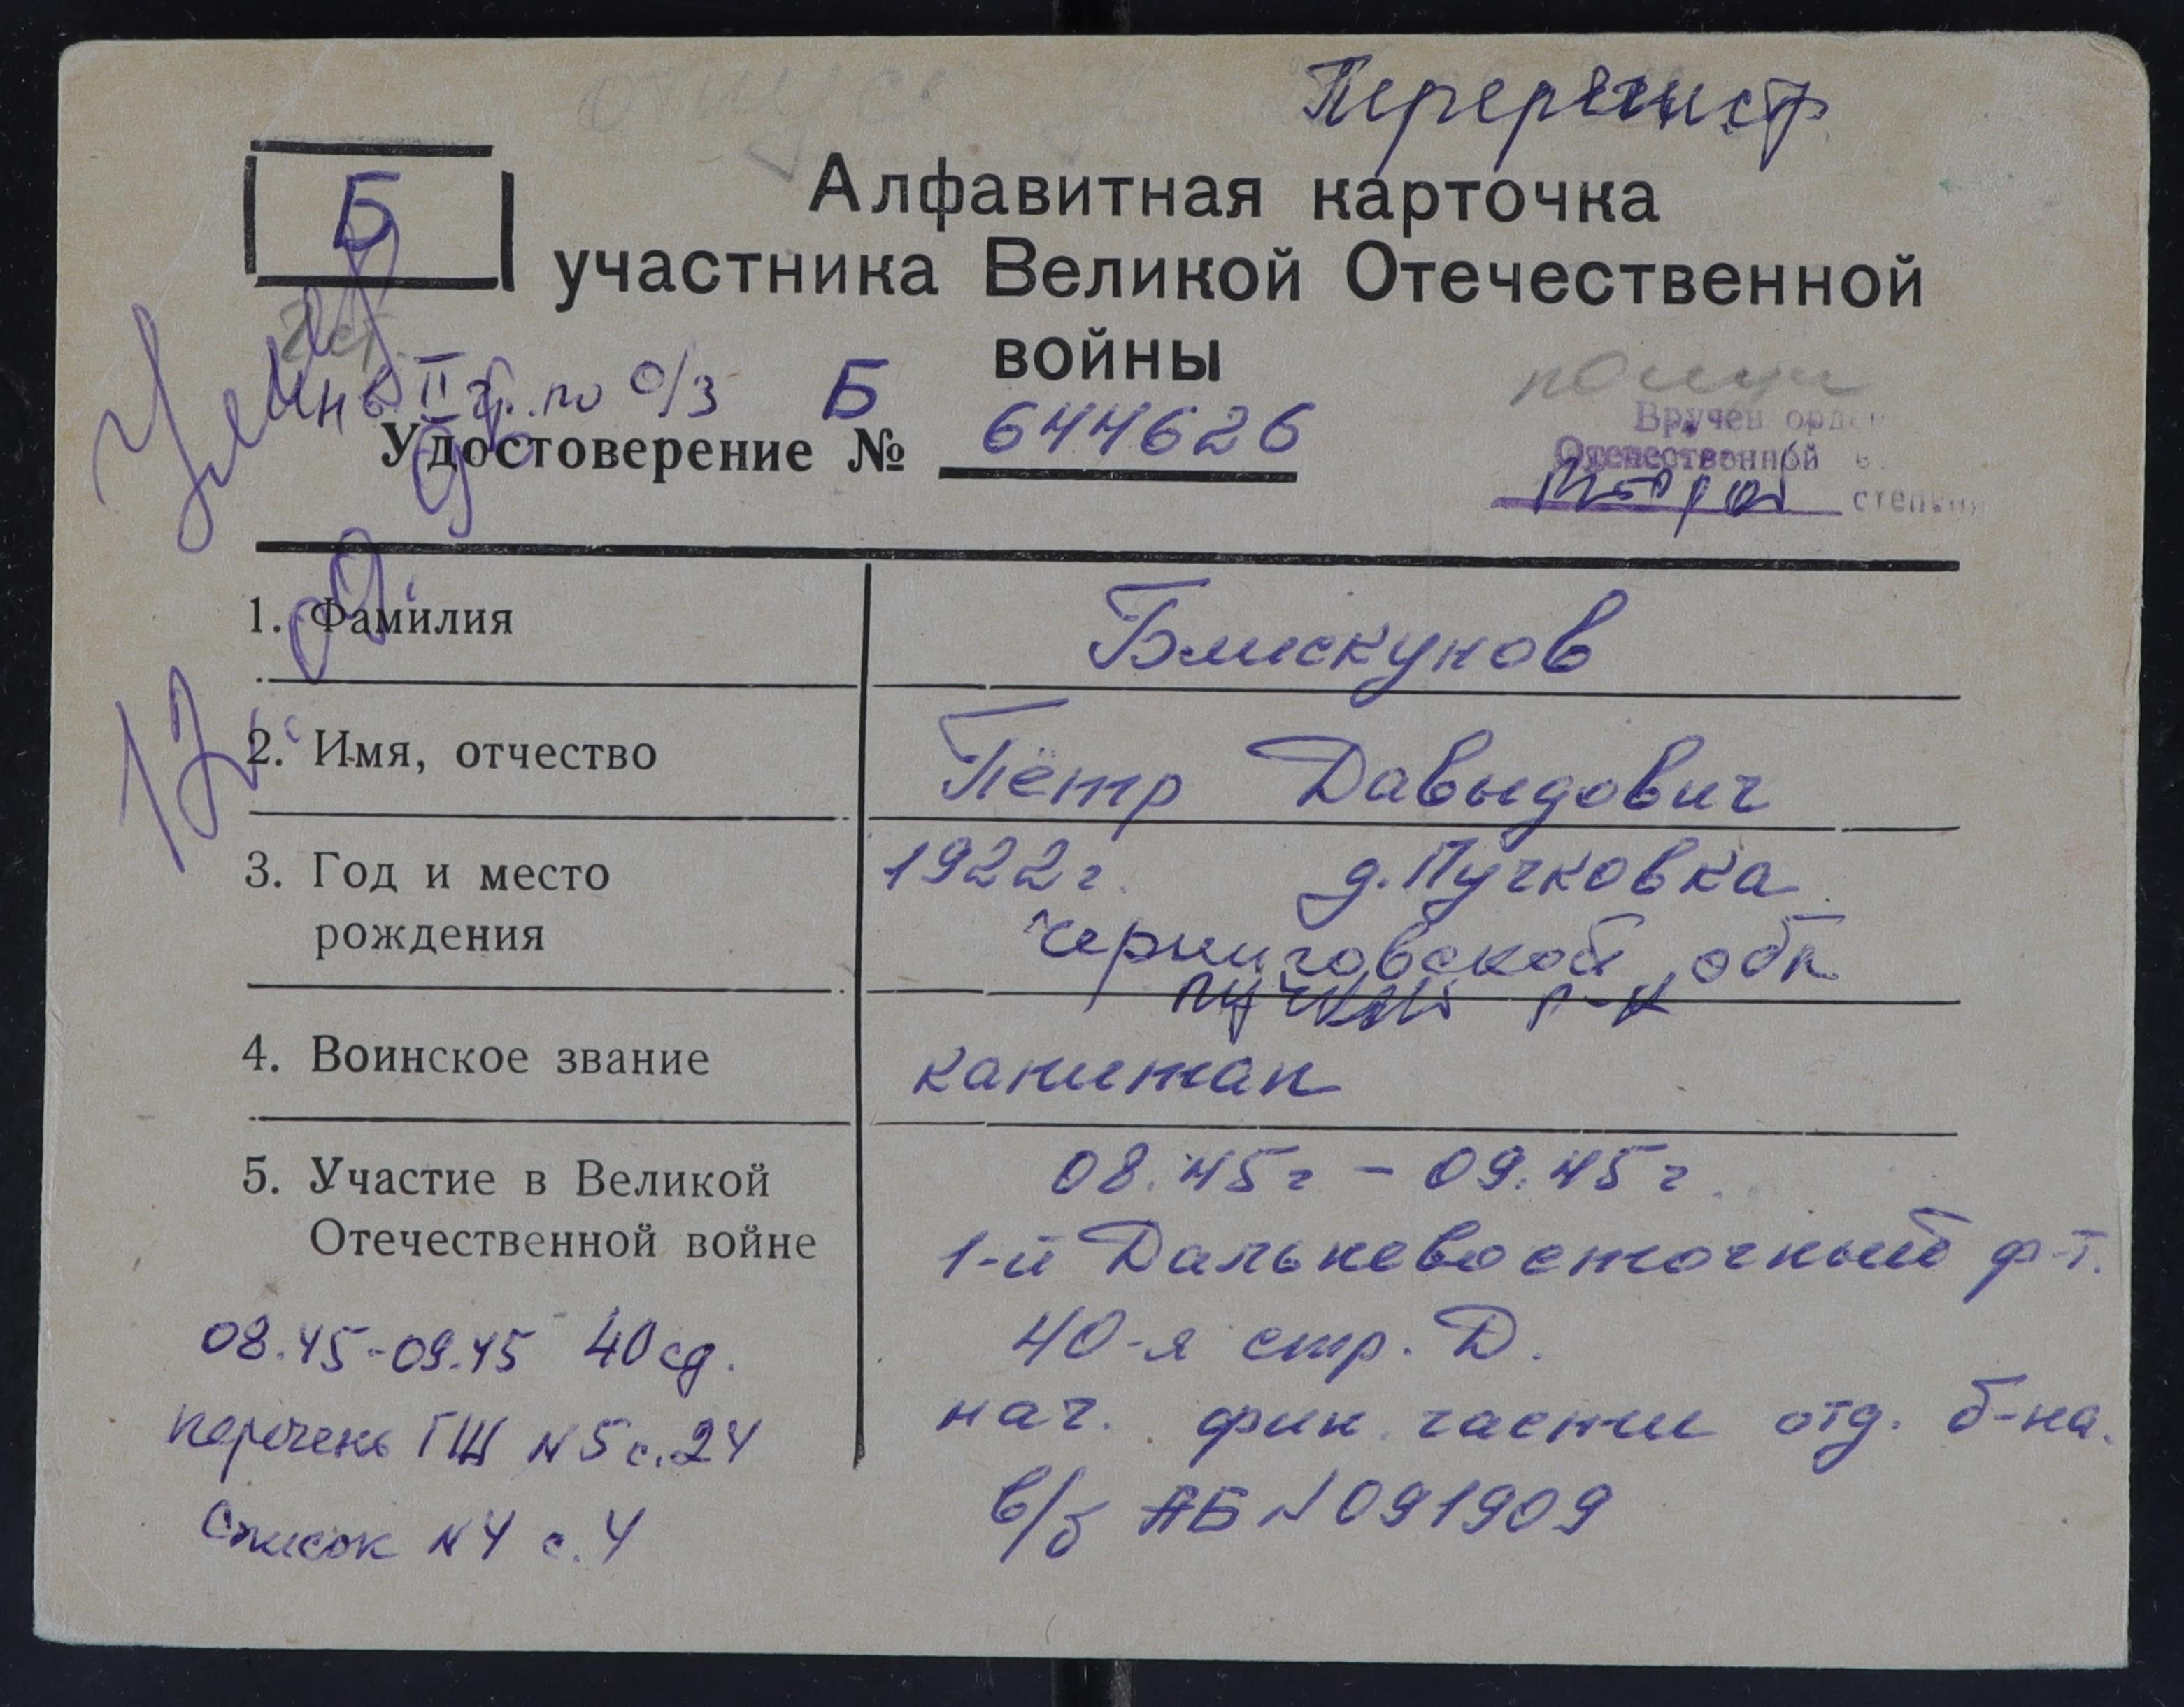 Перерегистр
Б
Алфавитная карточка
участника Великой Отечественной
войны
Инв. II гр. по о/з Б
Удостоверение № 644626
Вручен орден
Отечественной в.
второй степени
Умер
1. Фамилия Блискунов
2. Имя, отчество Пётр Давыдович
3. Год и место рождения 1922г. д. Пучковка
Черниговской обл
р-н
4. Воинское звание капитан
5. Участие в Великой Отечественной войне 08.45г - 09.45г.
1-й Дальневосточный ф-т.
40-я стр. Д.
нач. фин. части отд. б-на.
в/б АБ N 091909
08.45-09.45 40 сд.
перечень ГШ N5 с.24
Список N4 с.4